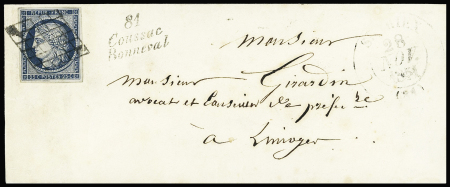 REPUB. FRANC.
25 C POSTES 25 C
81
Coussac
Bonneval
28
NOV.
Monsieur
Monsieur Girardin
avocat et Conseiller de préfre
à Limoges